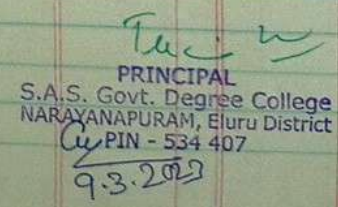 PRINCIPAL
S.A.S. Govt. Degree College
NARAYANAPURAM, Eluru District
PIN - 534 407
9.3.2023